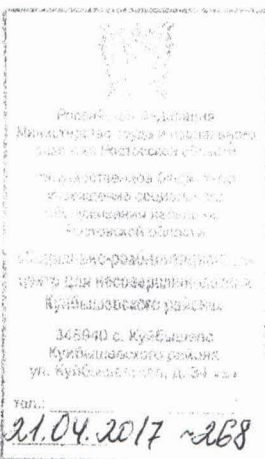 Российская Федерация
Министерство труда и социального
развития Ростовской области
государственное бюджетное
учреждение социального
обслуживания населения
Ростовской области
«Социально-реабилитационный
центр для несовершеннолетних
Куйбышевского района»
346940 с. Куйбышево
Куйбышевского района
ул. Куйбышевская, д. 34
тел.:
21.04.2017 ~268